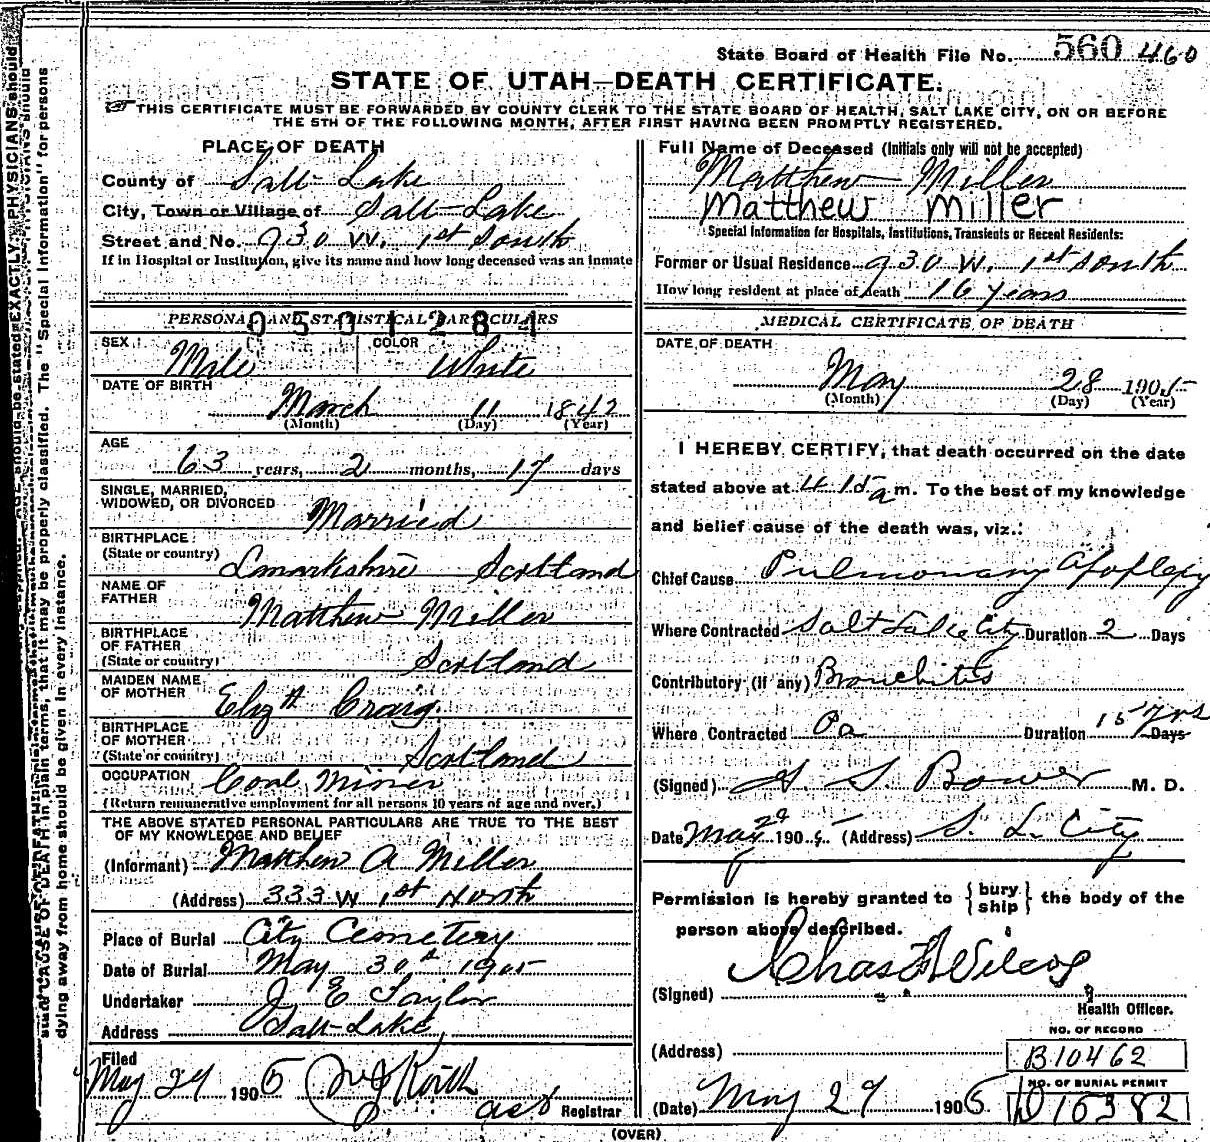 State Board of Health File No. 560 460
STATE OF UTAH—DEATH CERTIFICATE.
THIS CERTIFICATE MUST BE FORWARDED BY COUNTY CLERK TO THE STATE BOARD OF HEALTH, SALT LAKE CITY, ON OR BEFORE
THE 5TH OF THE FOLLOWING MONTH, AFTER FIRST HAVING BEEN PROMPTLY REGISTERED.
PLACE OF DEATH
County of Salt Lake
City, Town or Village of Salt Lake
Street and No. 930 W. 1st South
If in Hospital or Institution, give its name and how long deceased was an inmate
PERSONAL AND STATISTICAL PARTICULARS
0501281
SEX Male COLOR White
DATE OF BIRTH
March 11 1842
(Month) (Day) (Year)
AGE
63 years, 2 months, 17 days
SINGLE, MARRIED,
WIDOWED, OR DIVORCED Married
BIRTHPLACE
(State or country) Lanarkshire Scotland
NAME OF
FATHER Matthew Miller
BIRTHPLACE
OF FATHER
(State or country) Scotland
MAIDEN NAME
OF MOTHER Elizth Craig
BIRTHPLACE
OF MOTHER
(State or country) Scotland
OCCUPATION Coal Miner
(Return remunerative employment for all persons 10 years of age and over.)
THE ABOVE STATED PERSONAL PARTICULARS ARE TRUE TO THE BEST
OF MY KNOWLEDGE AND BELIEF
(Informant) Matthew A Miller
(Address) 333 W 1st North
Place of Burial City Cemetery
Date of Burial May 30th 1905
Undertaker J E Taylor
Address Salt Lake
Filed
May 29 1905
act Registrar
Full Name of Deceased (Initials only will not be accepted)
Matthew Miller
Matthew Miller
Special Information for Hospitals, Institutions, Transients or Recent Residents:
Former or Usual Residence 930 W. 1st South
How long resident at place of death 16 years
MEDICAL CERTIFICATE OF DEATH
DATE OF DEATH
May 28 1905
(Month) (Day) (Year)
I HEREBY CERTIFY, that death occurred on the date
stated above at 4 15 a m. To the best of my knowledge
and belief cause of the death was, viz.:
Chief Cause Pulmonary Apoplexy
Where Contracted Salt Lake City Duration 2 Days
Contributory (if any) Bronchitis
Where Contracted Pa Duration 15 yrs Days
(Signed) S. Bower M. D.
Date May 29 1905 (Address) S. L. City
Permission is hereby granted to { bury ship } the body of the
person above described.
(Signed) Chas F Wilcox
Health Officer.
(Address)
NO. OF RECORD
B10462
NO. OF BURIAL PERMIT
D16382
(Date) May 29 1905
(OVER)
stated EXACTLY. PHYSICIANS should
state CAUSE OF DEATH in plain terms, that it may be properly classified. The "Special Information" for persons
dying away from home should be given in every instance.